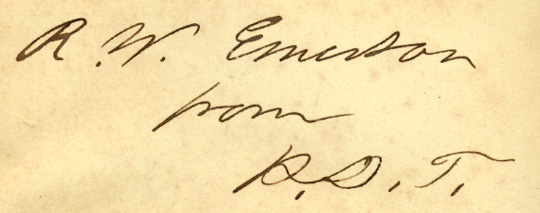 R. W. Emerson
from
H. D. T.